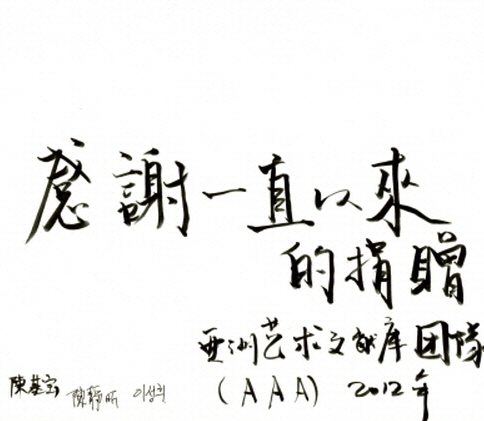 感謝一直以來
的捐贈
亚洲艺术文献库团隊
(AAA) 2012年
陳基宝 陳靜昕 이성희